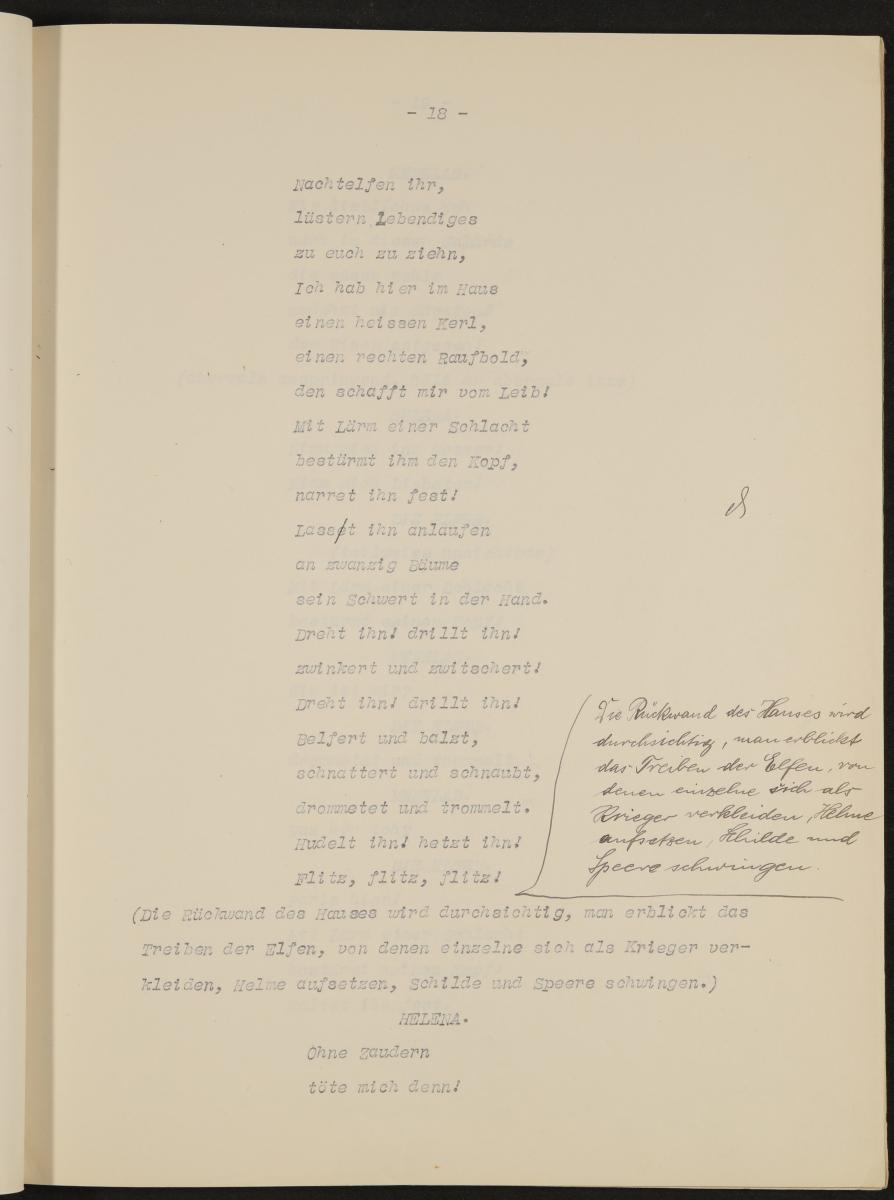 - 18 -
Nachtelfen ihr,
lüstern Lebendiges
zu euch zu ziehn,
Ich hab hier im Haus
einen heissen Kerl,
einen rechten Raufbold,
den schafft mir vom Leib!
Mit Lärm einer Schlacht
bestürmt ihm den Kopf,
narret ihn fest!
Lasset ihn anlaufen
an zwanzig Bäume
sein Schwert in der Hand.
Dreht ihn! drillt ihn!
zwinkert und zwitschert!
Dreht ihn! drillt ihn!
Belfert und balzt,
schnattert und schnaubt,
drommetet und trommelt.
Hudelt ihn! hetzt ihn!
Flitz, flitz, flitz!
Die Rückwand des Hauses wird
durchsichtig, man erblickt
das Treiben der Elfen, von
denen einzelne sich als
Krieger verkleiden, Helme
aufsetzen, Schilde und
Speere schwingen.
(Die Rückwand des Hauses wird durchsichtig, man erblickt das
Treiben der Elfen, von denen einzelne sich als Krieger ver-
kleiden, Helme aufsetzen, Schilde und Speere schwingen.)
HELENA.
Ohne Zaudern
töte mich denn!